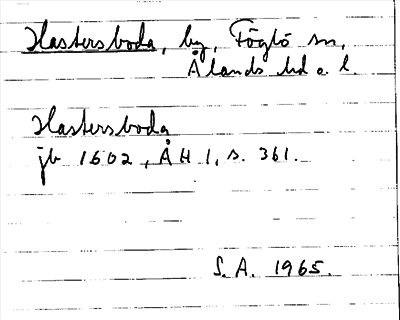 Hastersboda, by, Föglö sn,
Ålands hd o. l.
Hastersboda
jb 1602, ÅH 1, s. 361.
S.A. 1965.